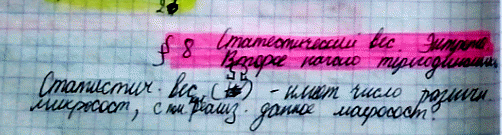 28
§ 8 Статестический вес. Энтропия.
Второе начало термодинамики
Статистич. вес, ( ) - имеет число различн.
микросост, с пом. реализ. данное макросост.